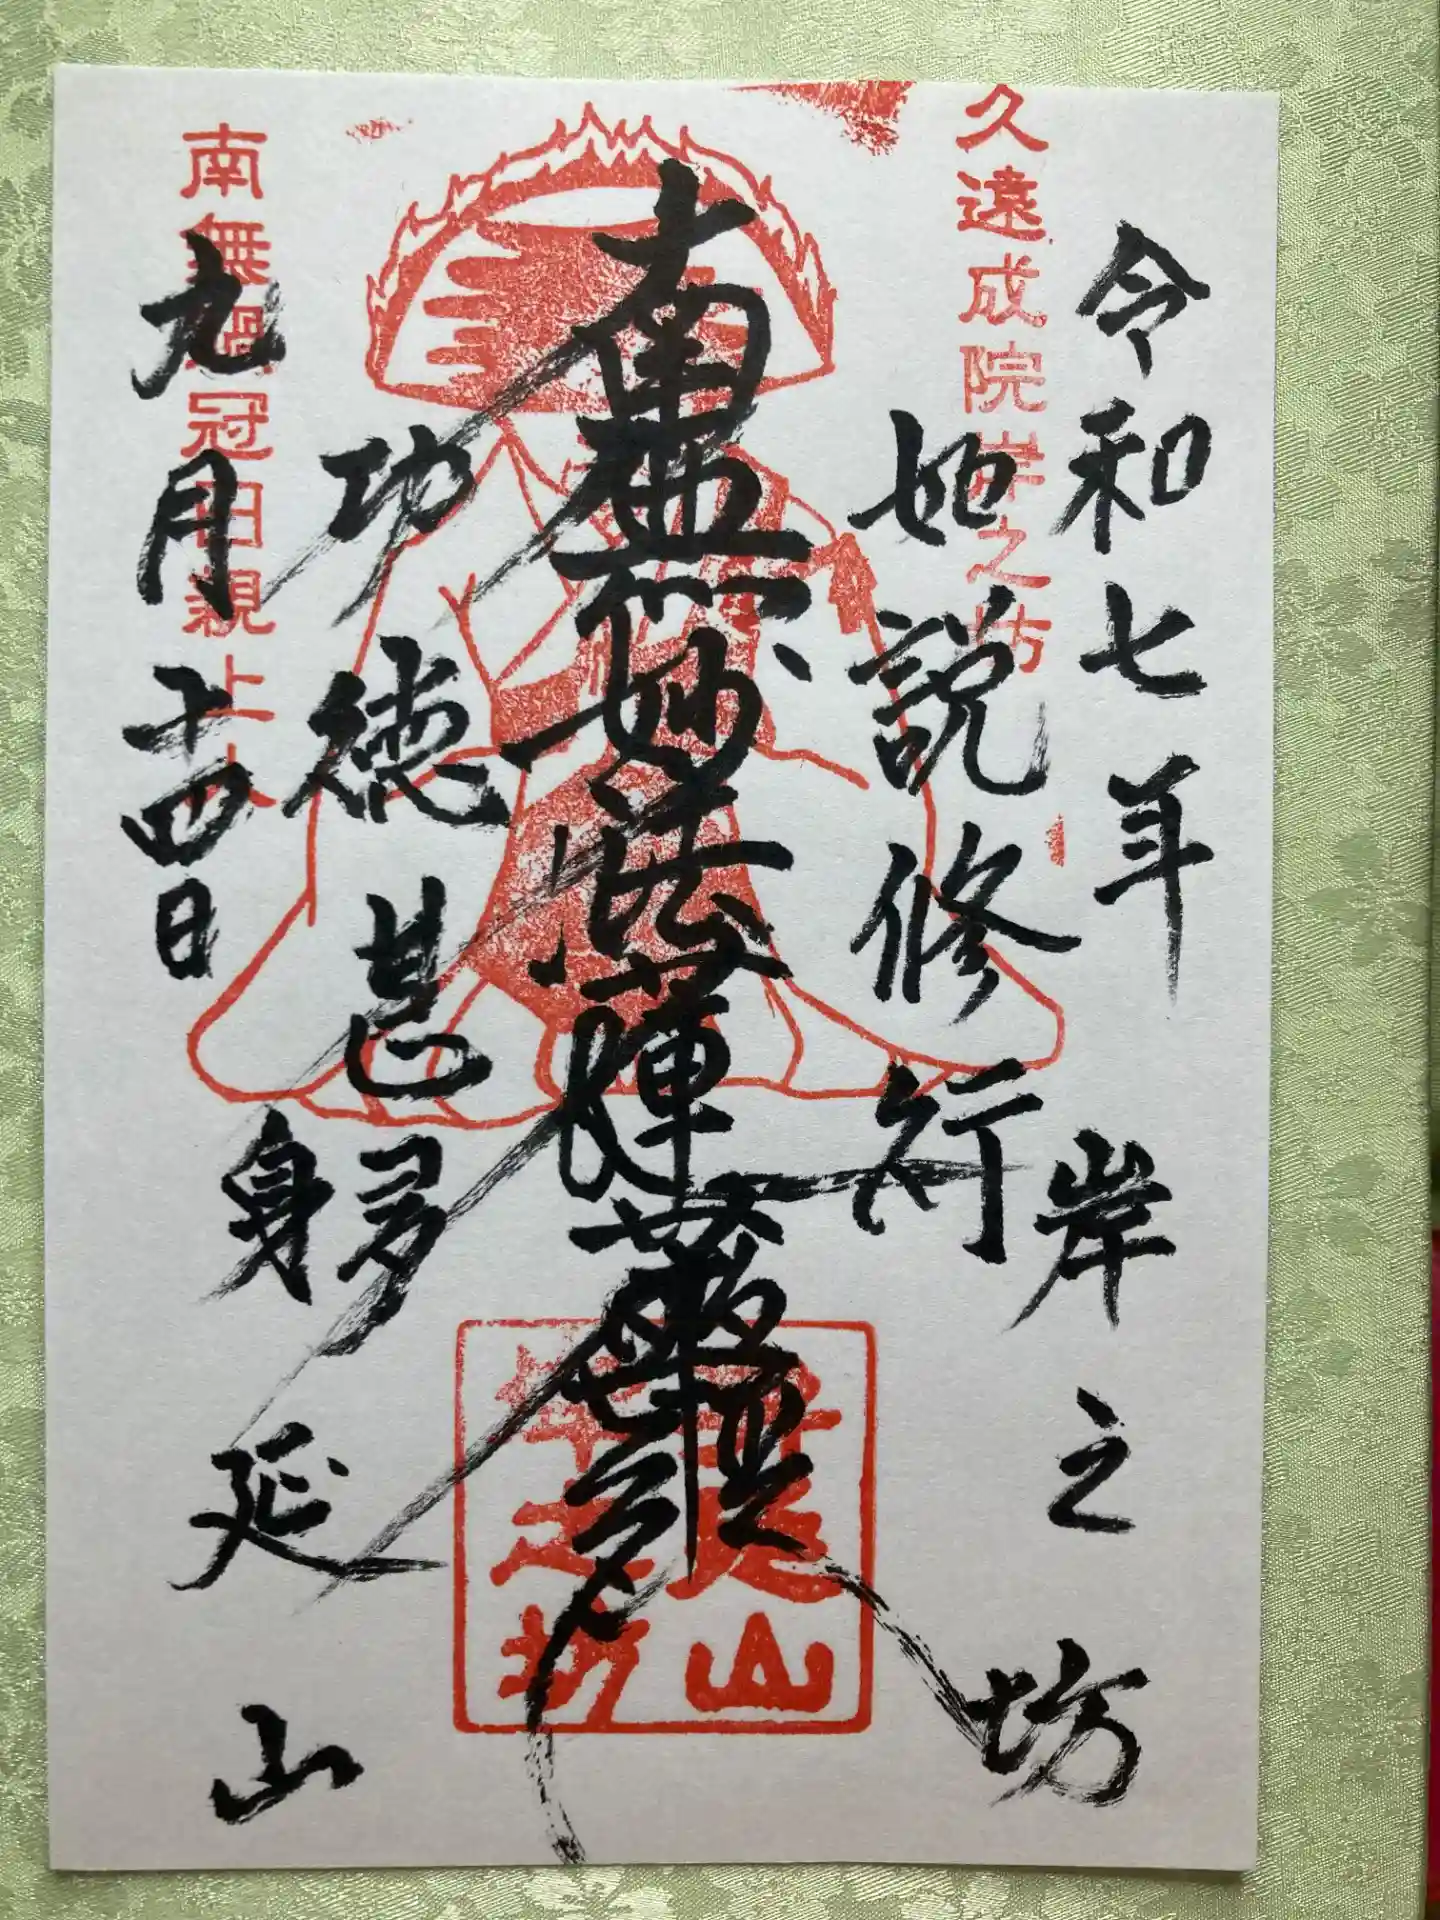 久遠成院岸之坊
令和七年 岸之坊
如説修行
南無妙法蓮華經
功徳甚多
身延山
九月十四日
南無鍋冠日親上人
身延山
岸之坊